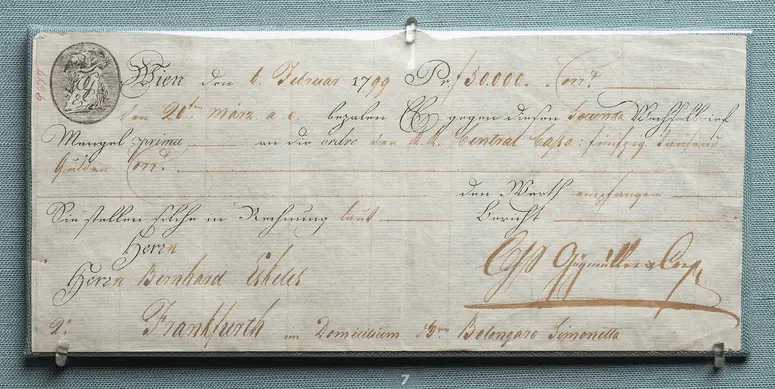 Wien den 6. Februar 1799 Pr f 50.000. Con.t
den 20ten März a. c. bezalen gegen diesen Secunda Wechselbrief
Mangel prima an die ordre der k. k. Central Cassa: funfzig tausend
Gulden Con.t
den Werth empfangen
Sie stellen solche in Rechnung laut Bericht
Herrn
Herrn Bernhard Eskeles
Frankfurth im Domicilium Bolongaro Simonetta
7